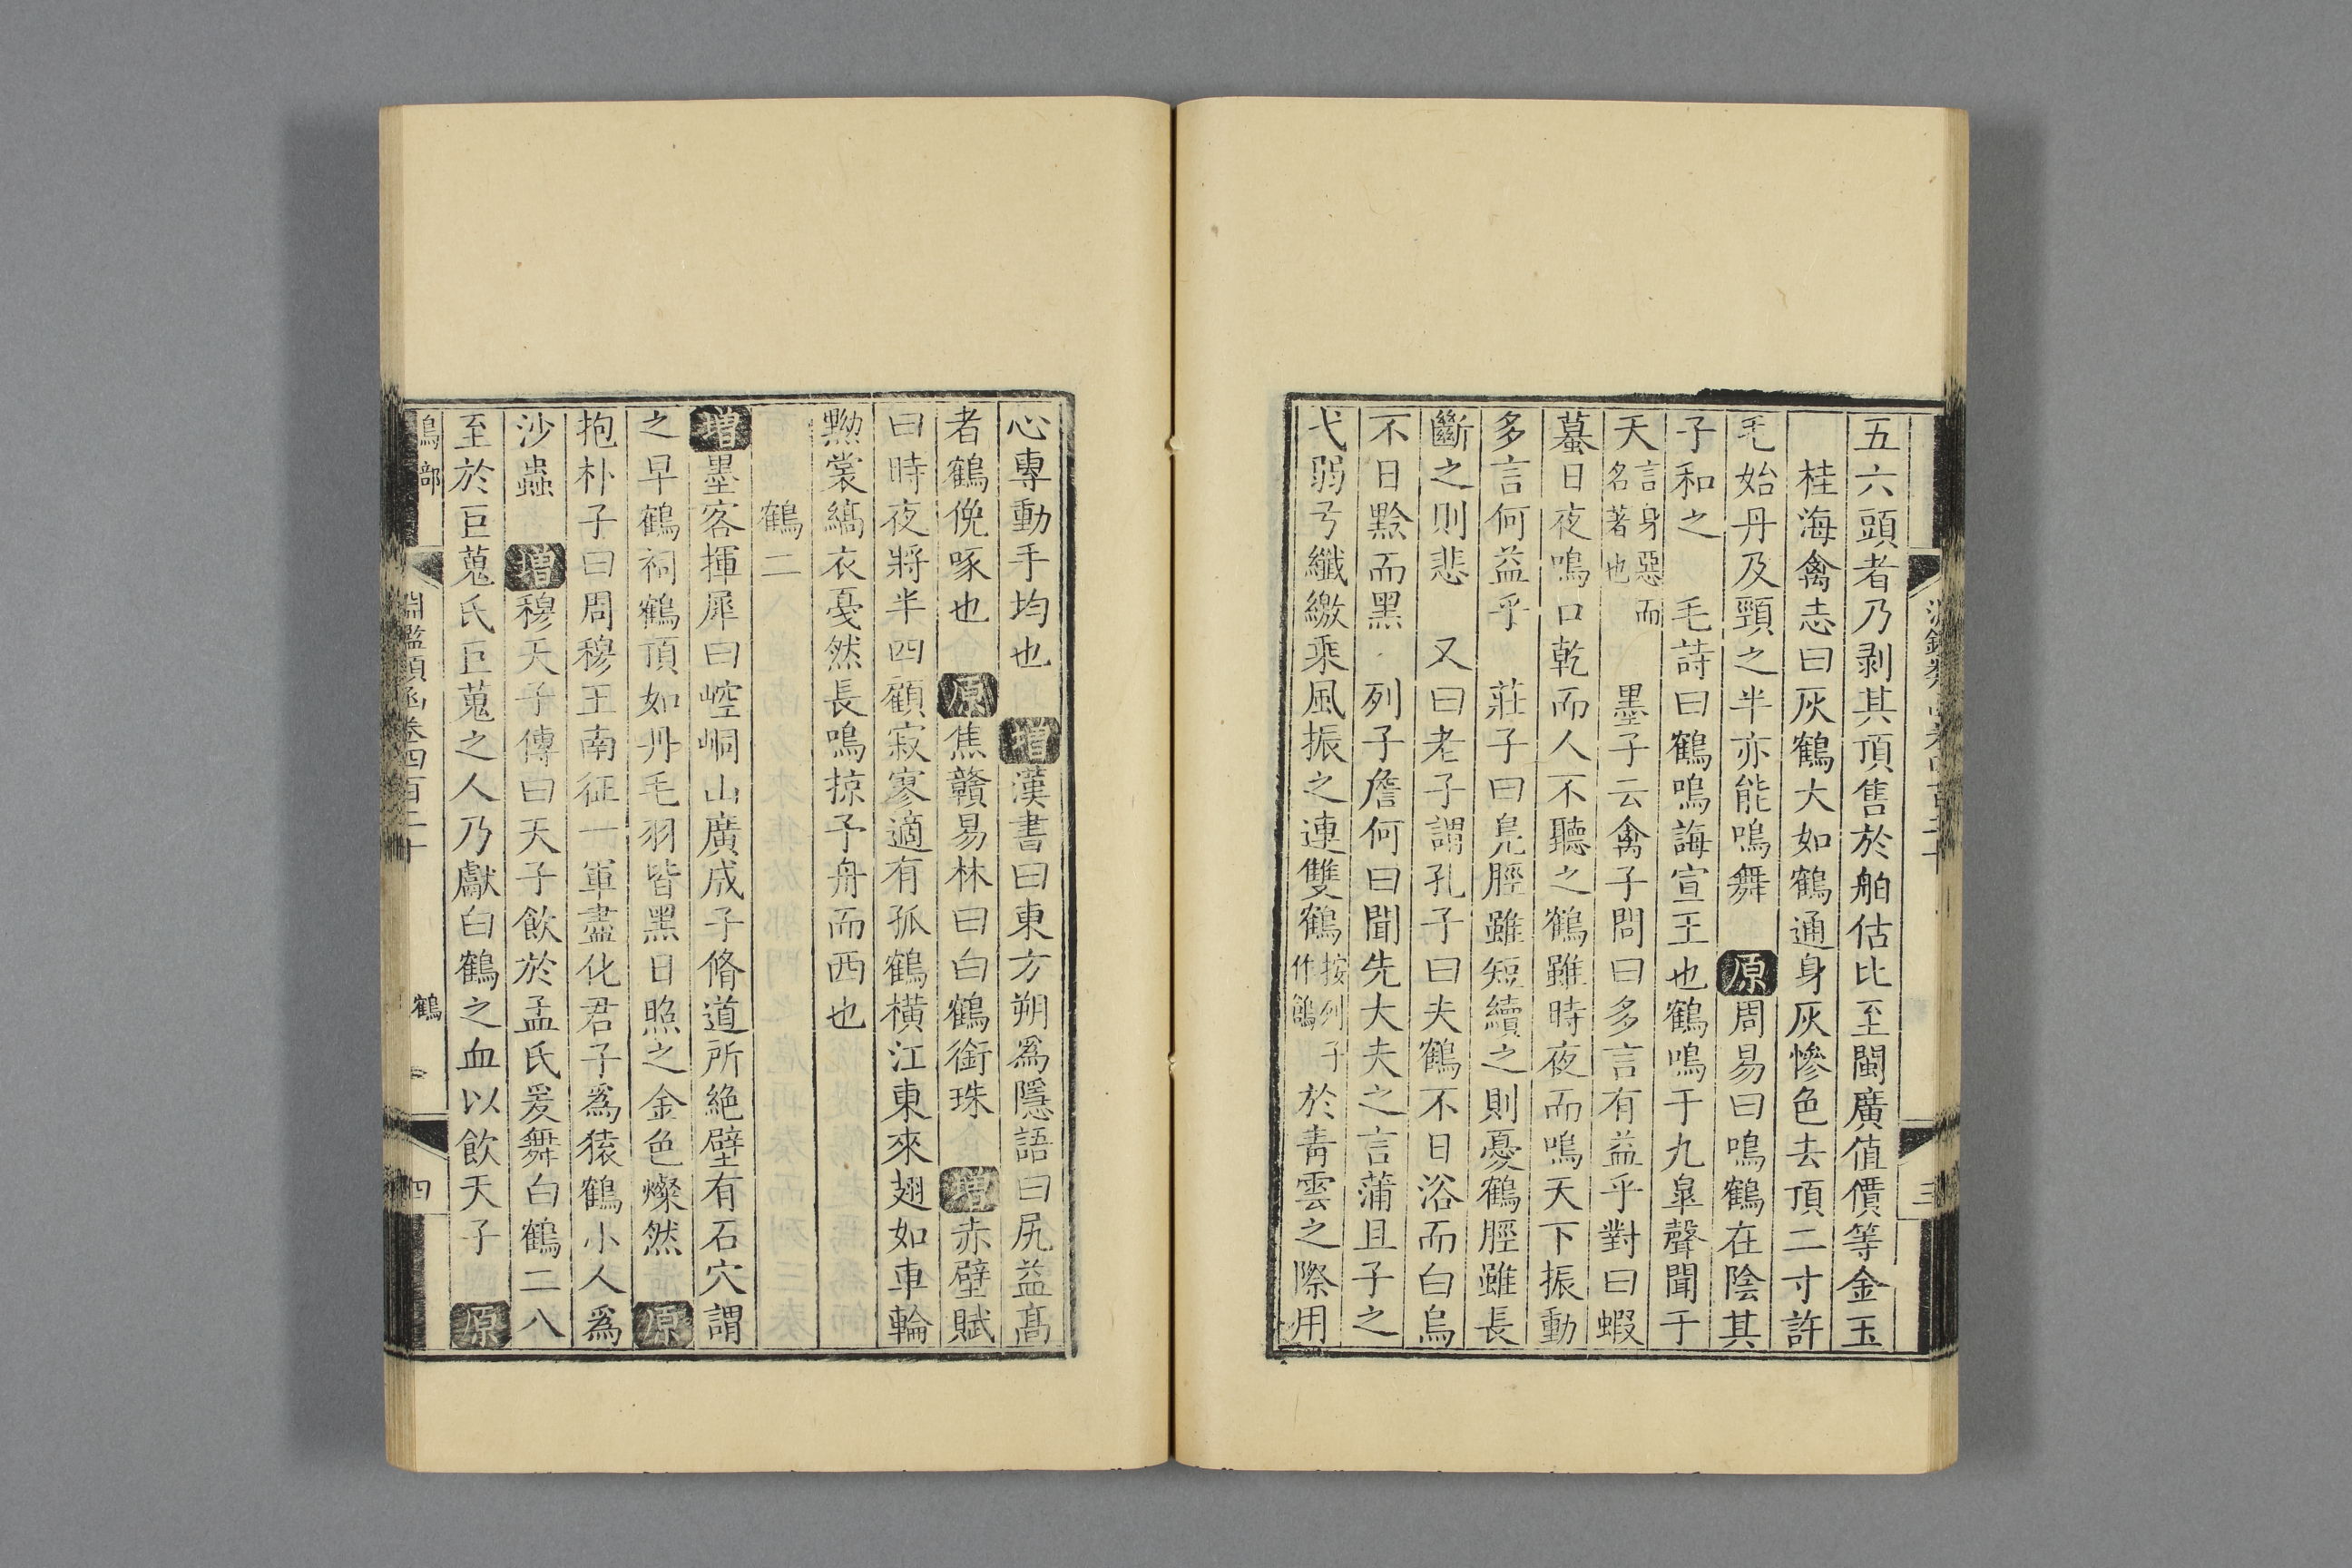 五六頭者乃剥其頂售於舶估比至閩廣值價等金玉
桂海禽志曰灰鶴大如鶴通身灰慘色去頂二寸許
毛始丹及頸之半亦能鳴舞 原周易曰鳴鶴在陰其
子和之 毛詩曰鶴鳴誨宣王也鶴鳴于九臯聲聞于
天言身惡而名著也 墨子云禽子問曰多言有益乎對曰蝦
蟇日夜鳴口乾而人不聽之鶴雖時夜而鳴天下振動
多言何益乎 莊子曰鳧脛雖短續之則憂鶴脛雖長
斷之則悲 又曰老子謂孔子曰夫鶴不日浴而白烏
不日黔而黑 列子詹何曰聞先大夫之言蒲且子之
弋弱弓纖繳乘風振之連雙鶴按列子作鶬於青雲之際用
心專動手均也 增漢書曰東方朔爲隱語曰尻益高
者鶴俛啄也 原焦贛易林曰白鶴銜珠 增赤壁賦
曰時夜將半四顧寂寥適有孤鶴橫江東來翅如車輪
黝裳縞衣戞然長鳴掠予舟而西也
鶴二
增墨客揮犀曰崆峒山廣成子脩道所絶壁有石穴謂
之早鶴祠鶴頂如丹毛羽皆黑日照之金色燦然 原
抱朴子曰周穆王南征一軍盡化君子爲猿鶴小人爲
沙蟲 增穆天子傳曰天子飲於孟氏爰舞白鶴二八
至於巨蒐氏巨蒐之人乃獻白鶴之血以飲天子 原
鳥部 淵鑑類函卷四百二十 鶴 四